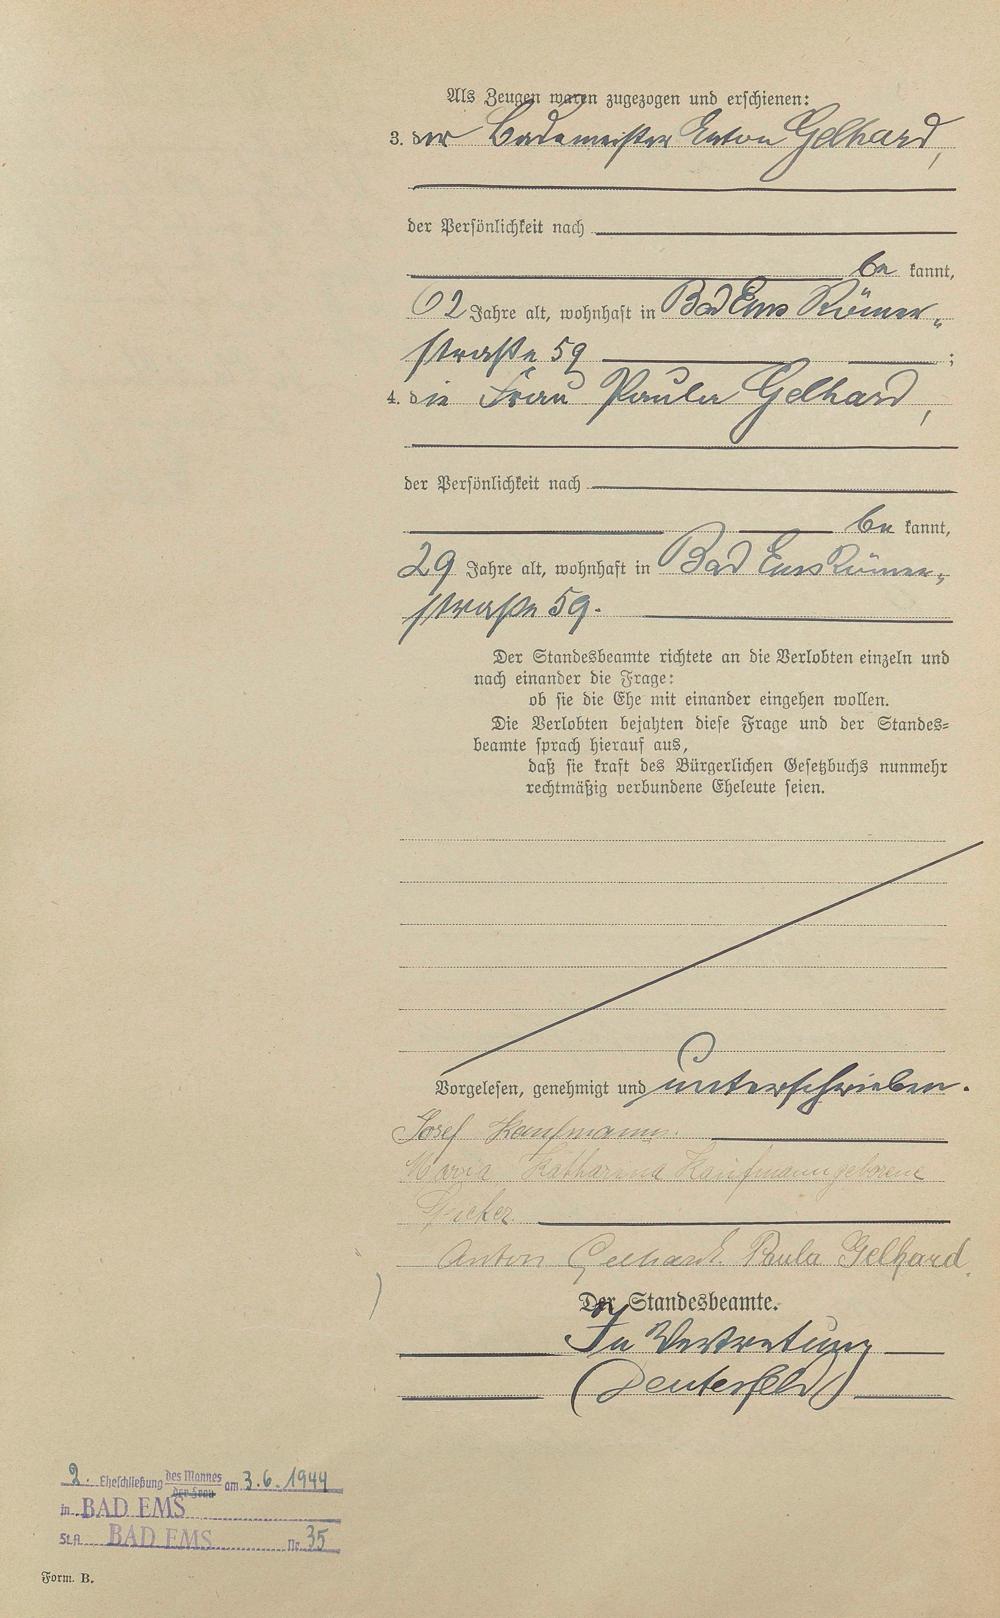 Als Zeugen waren zugezogen und erschienen:
3. der Bademeister Anton Gelhard,
der Persönlichkeit nach
be kannt,
62 Jahre alt, wohnhaft in Bad Ems Römer-
straße 59 ;
4. die Frau Paula Gelhard,
der Persönlichkeit nach
be kannt,
29 Jahre alt, wohnhaft in Bad Ems Römer-
straße 59.
Der Standesbeamte richtete an die Verlobten einzeln und
nach einander die Frage:
ob sie die Ehe mit einander eingehen wollen.
Die Verlobten bejahten diese Frage und der Standes-
beamte sprach hierauf aus,
daß sie kraft des Bürgerlichen Gesetzbuchs nunmehr
rechtmäßig verbundene Eheleute seien.
Vorgelesen, genehmigt und unterschrieben.
Josef Kaufmann.
Maria Katharina Kaufmann geborene
Anton Gelhard. Paula Gelhard.
Der Standesbeamte.
In Vertretung
2. Eheschließung des Mannes der Frau am 3.6.1944
in BAD EMS
St.A. BAD EMS Nr. 35
Form. B.